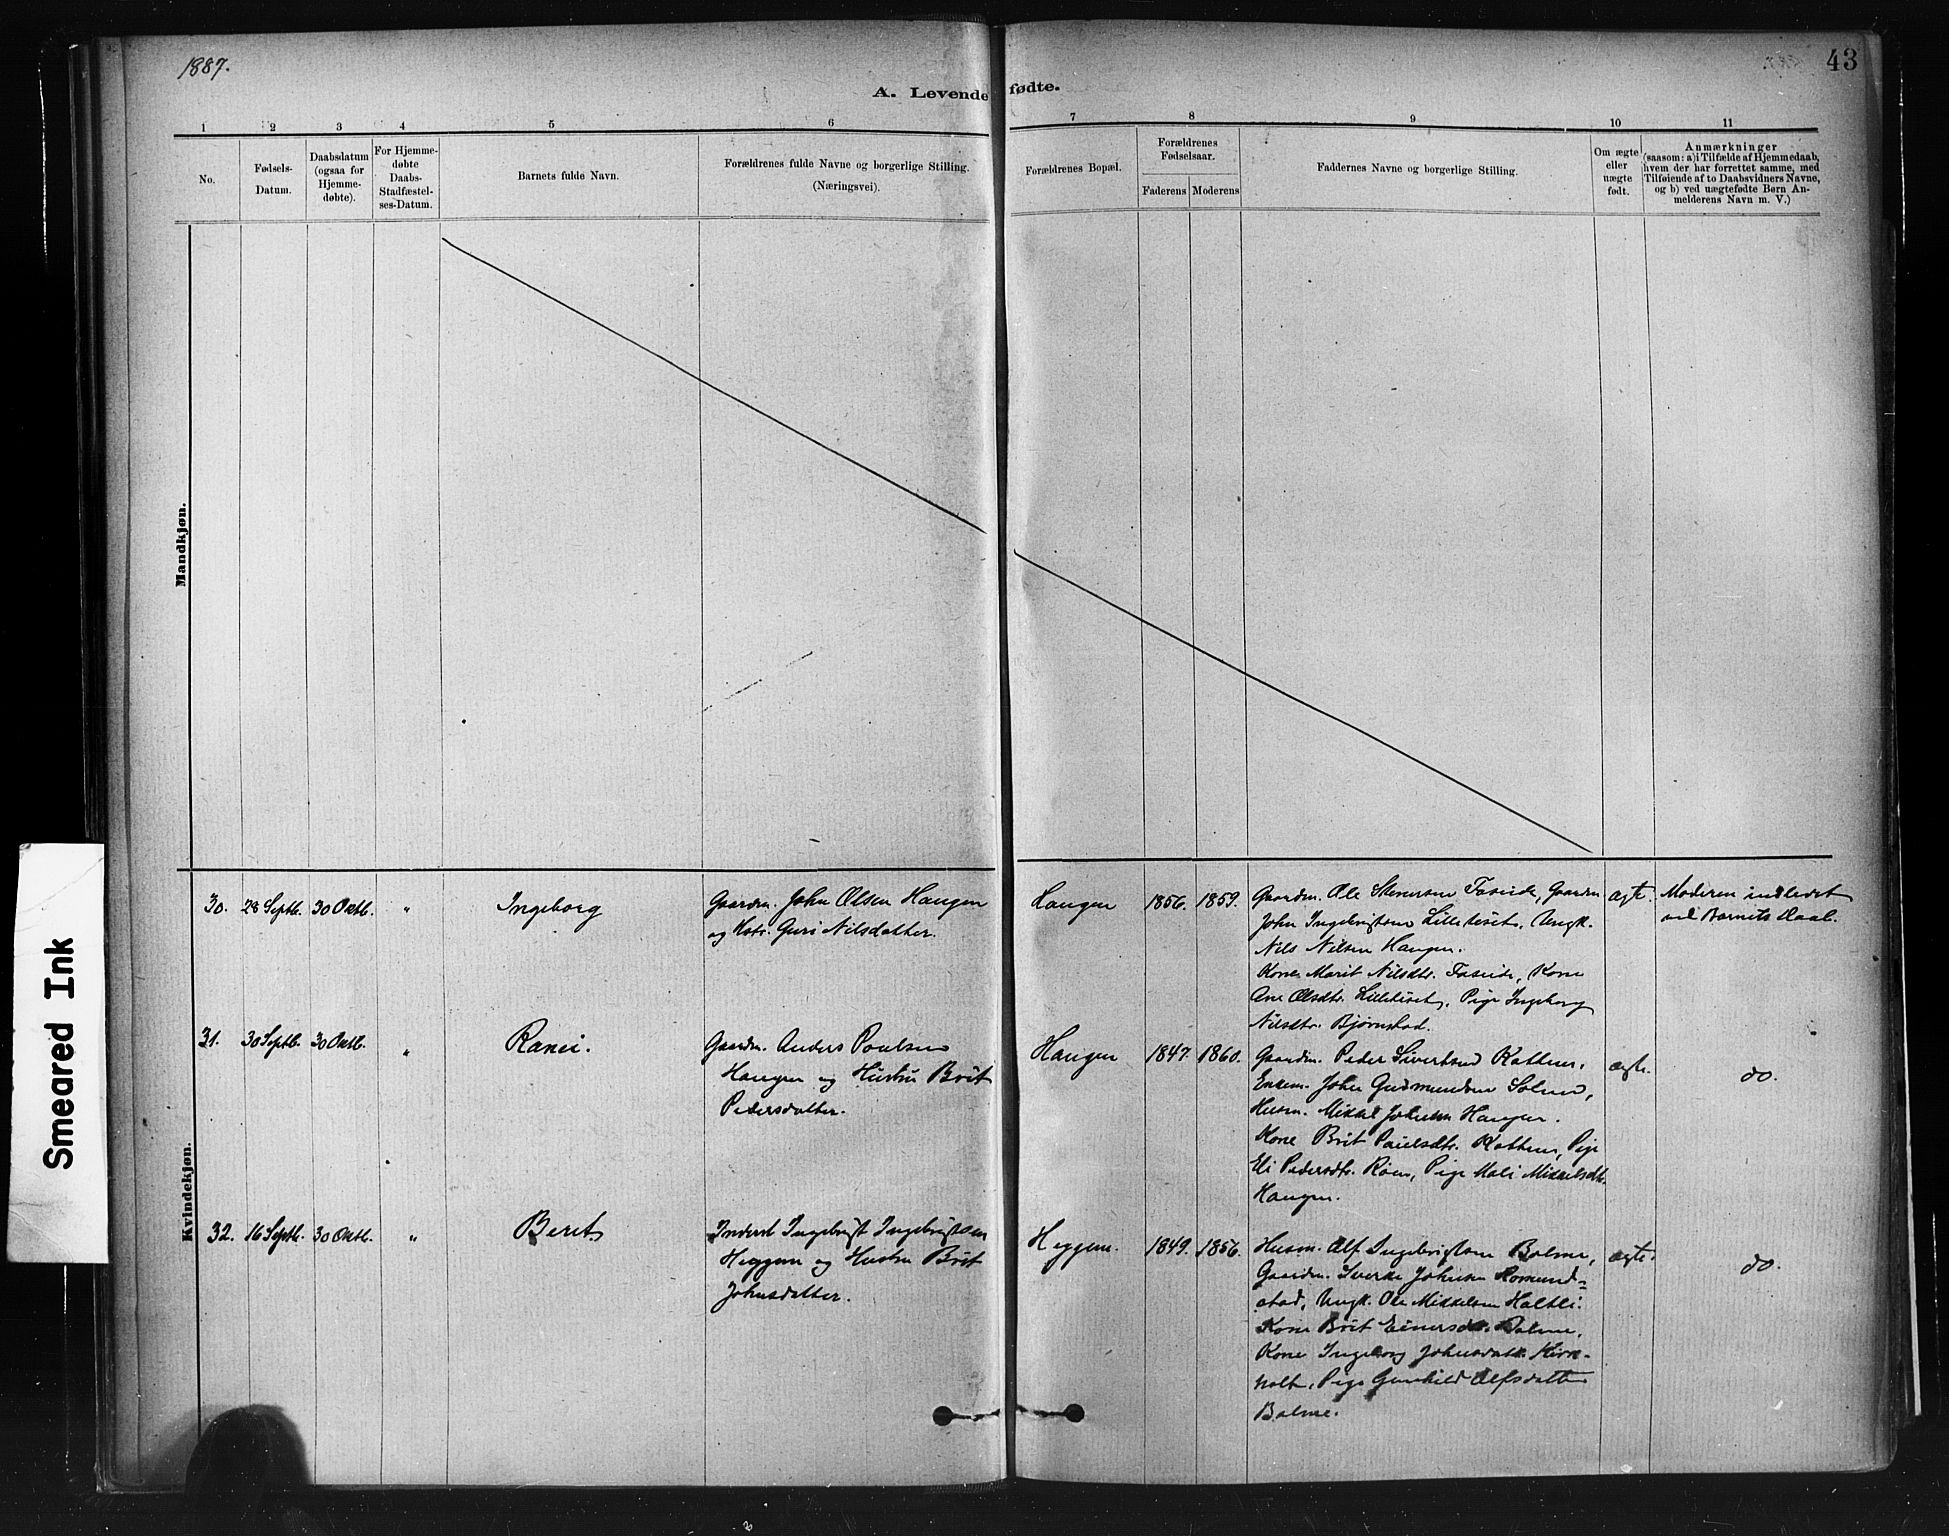 1887.
43
A. Levende fødte.
1 2 3 4 5 6 7 8 9 10 11
No.
Fødsels-
Datum.
Daabsdatum
(ogsaa for
Hjemme-
døbte).
For Hjemme-
døbte
Daabs-
Stadfæstel-
ses-Datum.
Barnets fulde Navn.
Forældrenes fulde Navne og borgerlige Stilling.
(Næringsvei).
Forældrenes Bopæl.
Forældrenes
Fødselsaar.
Faderens Moderens
Faddernes Navne og borgerlige Stilling.
Om ægte
eller
uægte
født.
Anmærkninger
(saasom: a) i Tilfælde af Hjemmedaab,
hvem der har forrettet samme, med
Tilføiende af to Daabsvidners Navne,
og b) ved uægtefødte Børn An-
melderens Navn m. V.)
Mandkjøn.
Kvindekjøn.
Smeared Ink
30. 28 Septb. 30 Oktb. "
Ingeborg
Gaardm. John Olsen Haugen
og Hstr. Guri Nilsdatter.
Haugen
1856. 1859.
Gaardm. Ole Stenersen Faseide, Gaardm.
John Ingebrigtsen Lilleteset. Ungk.
Nils Nilsen Haugen.
Kone Marit Nilsdtr. Faseide, Kone
Ane Olsdtr. Lilleteset, Pige Ingeborg
Nilsdtr. Bjørnstad.
ægt.
Moderen indledet
ved Barnets Daab.
31. 30 Septb. 30 Oktb. "
Ranei.
Gaardm. Anders Poulsen
Haugen og Hustru Brit
Pedersdatter.
Haugen
1847. 1860.
Gaardm. Peder Sivertsen
Enkem. John Gudmundsen
Husm. Mikkel Johnsen Haugen.
Kone Brit Paulsdtr. Pige
Eli Pedersdtr. Røen, Pige Mali Mikkelsdtr.
Haugen.
ægte.
do.
32. 16 Septb. 30 Oktb. "
Beret
Inderst Ingebrigt Ingebrigtsen
Heggem og Hustru Brit
Johnsdatter.
Heggem.
1849. 1856.
Husm. Alf Ingebrigtsen Bolme,
Gaardm. Sverke Johnsen Romund-
stad, Ungk. Ole Mikkelsen Holtli.
Kone Brit Einersdtr. Bolme,
Kone Ingeborg Johnsdatter Kirk-
holt, Pige Gunhild Alfsdatter
Bolme.
ægte.
do.